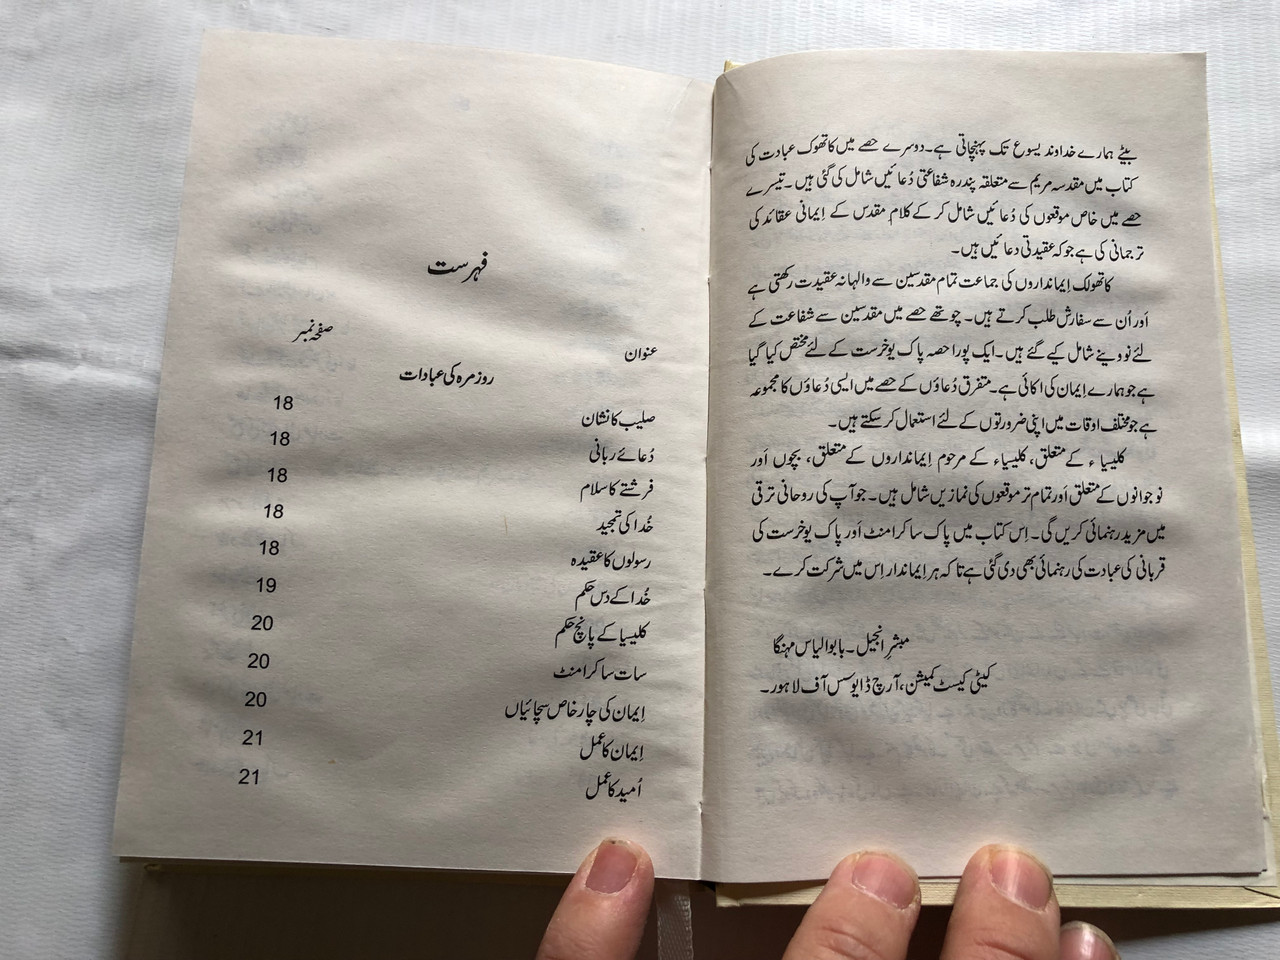 بیٹے ہمارے خداوند یسوع تک پہنچاتی ہے۔ دوسرے حصے میں کاتھولک عبادت کی
کتاب میں مقدسہ مریم سے متعلقہ پندرہ شفاعتی دُعائیں شامل کی گئی ہیں۔ تیسرے
حصے میں خاص موقعوں کی دُعائیں شامل کر کے کلامِ مقدس کے اِیمانی عقائد کی
ترجمانی کی ہے جو کہ عقیدتی دعائیں ہیں۔
کاتھولک اِیمانداروں کی جماعت تمام مقدسین سے والہانہ عقیدت رکھتی ہے
اَور اُن سے سفارش طلب کرتے ہیں۔ چوتھے حصے میں مقدسین سے شفاعت کے
لئے نووینے شامل کیے گئے ہیں۔ ایک پورا حصہ پاک یوخرست کے لئے مختص کیا گیا
ہے جو ہمارے اِیمان کی اکائی ہے۔ متفرق دُعاؤں کے حصے میں ایسی دُعاؤں کا مجموعہ
ہے جو مختلف اوقات میں اپنی ضرورتوں کے لئے استعمال کر سکتے ہیں۔
کلیسیاء کے متعلق، کلیسیاء کے مرحوم اِیمانداروں کے متعلق، بچوں اَور
نوجوانوں کے متعلق اَور تمام تر موقعوں کی نمازیں شامل ہیں۔ جو آپ کی روحانی ترقی
میں مزید رہنمائی کریں گی۔ اِس کتاب میں پاک ساکرامنٹ اَور پاک یوخرست کی
قربانی کی عبادت کی رہنمائی بھی دی گئی ہے تاکہ ہر اِیماندار اِس میں شرکت کرے۔
مبشرِ انجیل۔ بابو الیاس مہنگا
کیٹی کیسٹ کمیشن، آرچ ڈایوسس آف لاہور۔
فہرست
عنوان صفحہ نمبر
روزمرہ کی عبادات
صلیب کا نشان 18
دُعائے ربانی 18
فرشتے کا سلام 18
خُدا کی تمجید 18
رسولوں کا عقیدہ 18
خُدا کے دس حکم 19
کلیسیا کے پانچ حکم 20
سات ساکرامنٹ 20
اِیمان کی چار خاص سچائیاں 20
اِیمان کا عمل 21
اُمید کا عمل 21